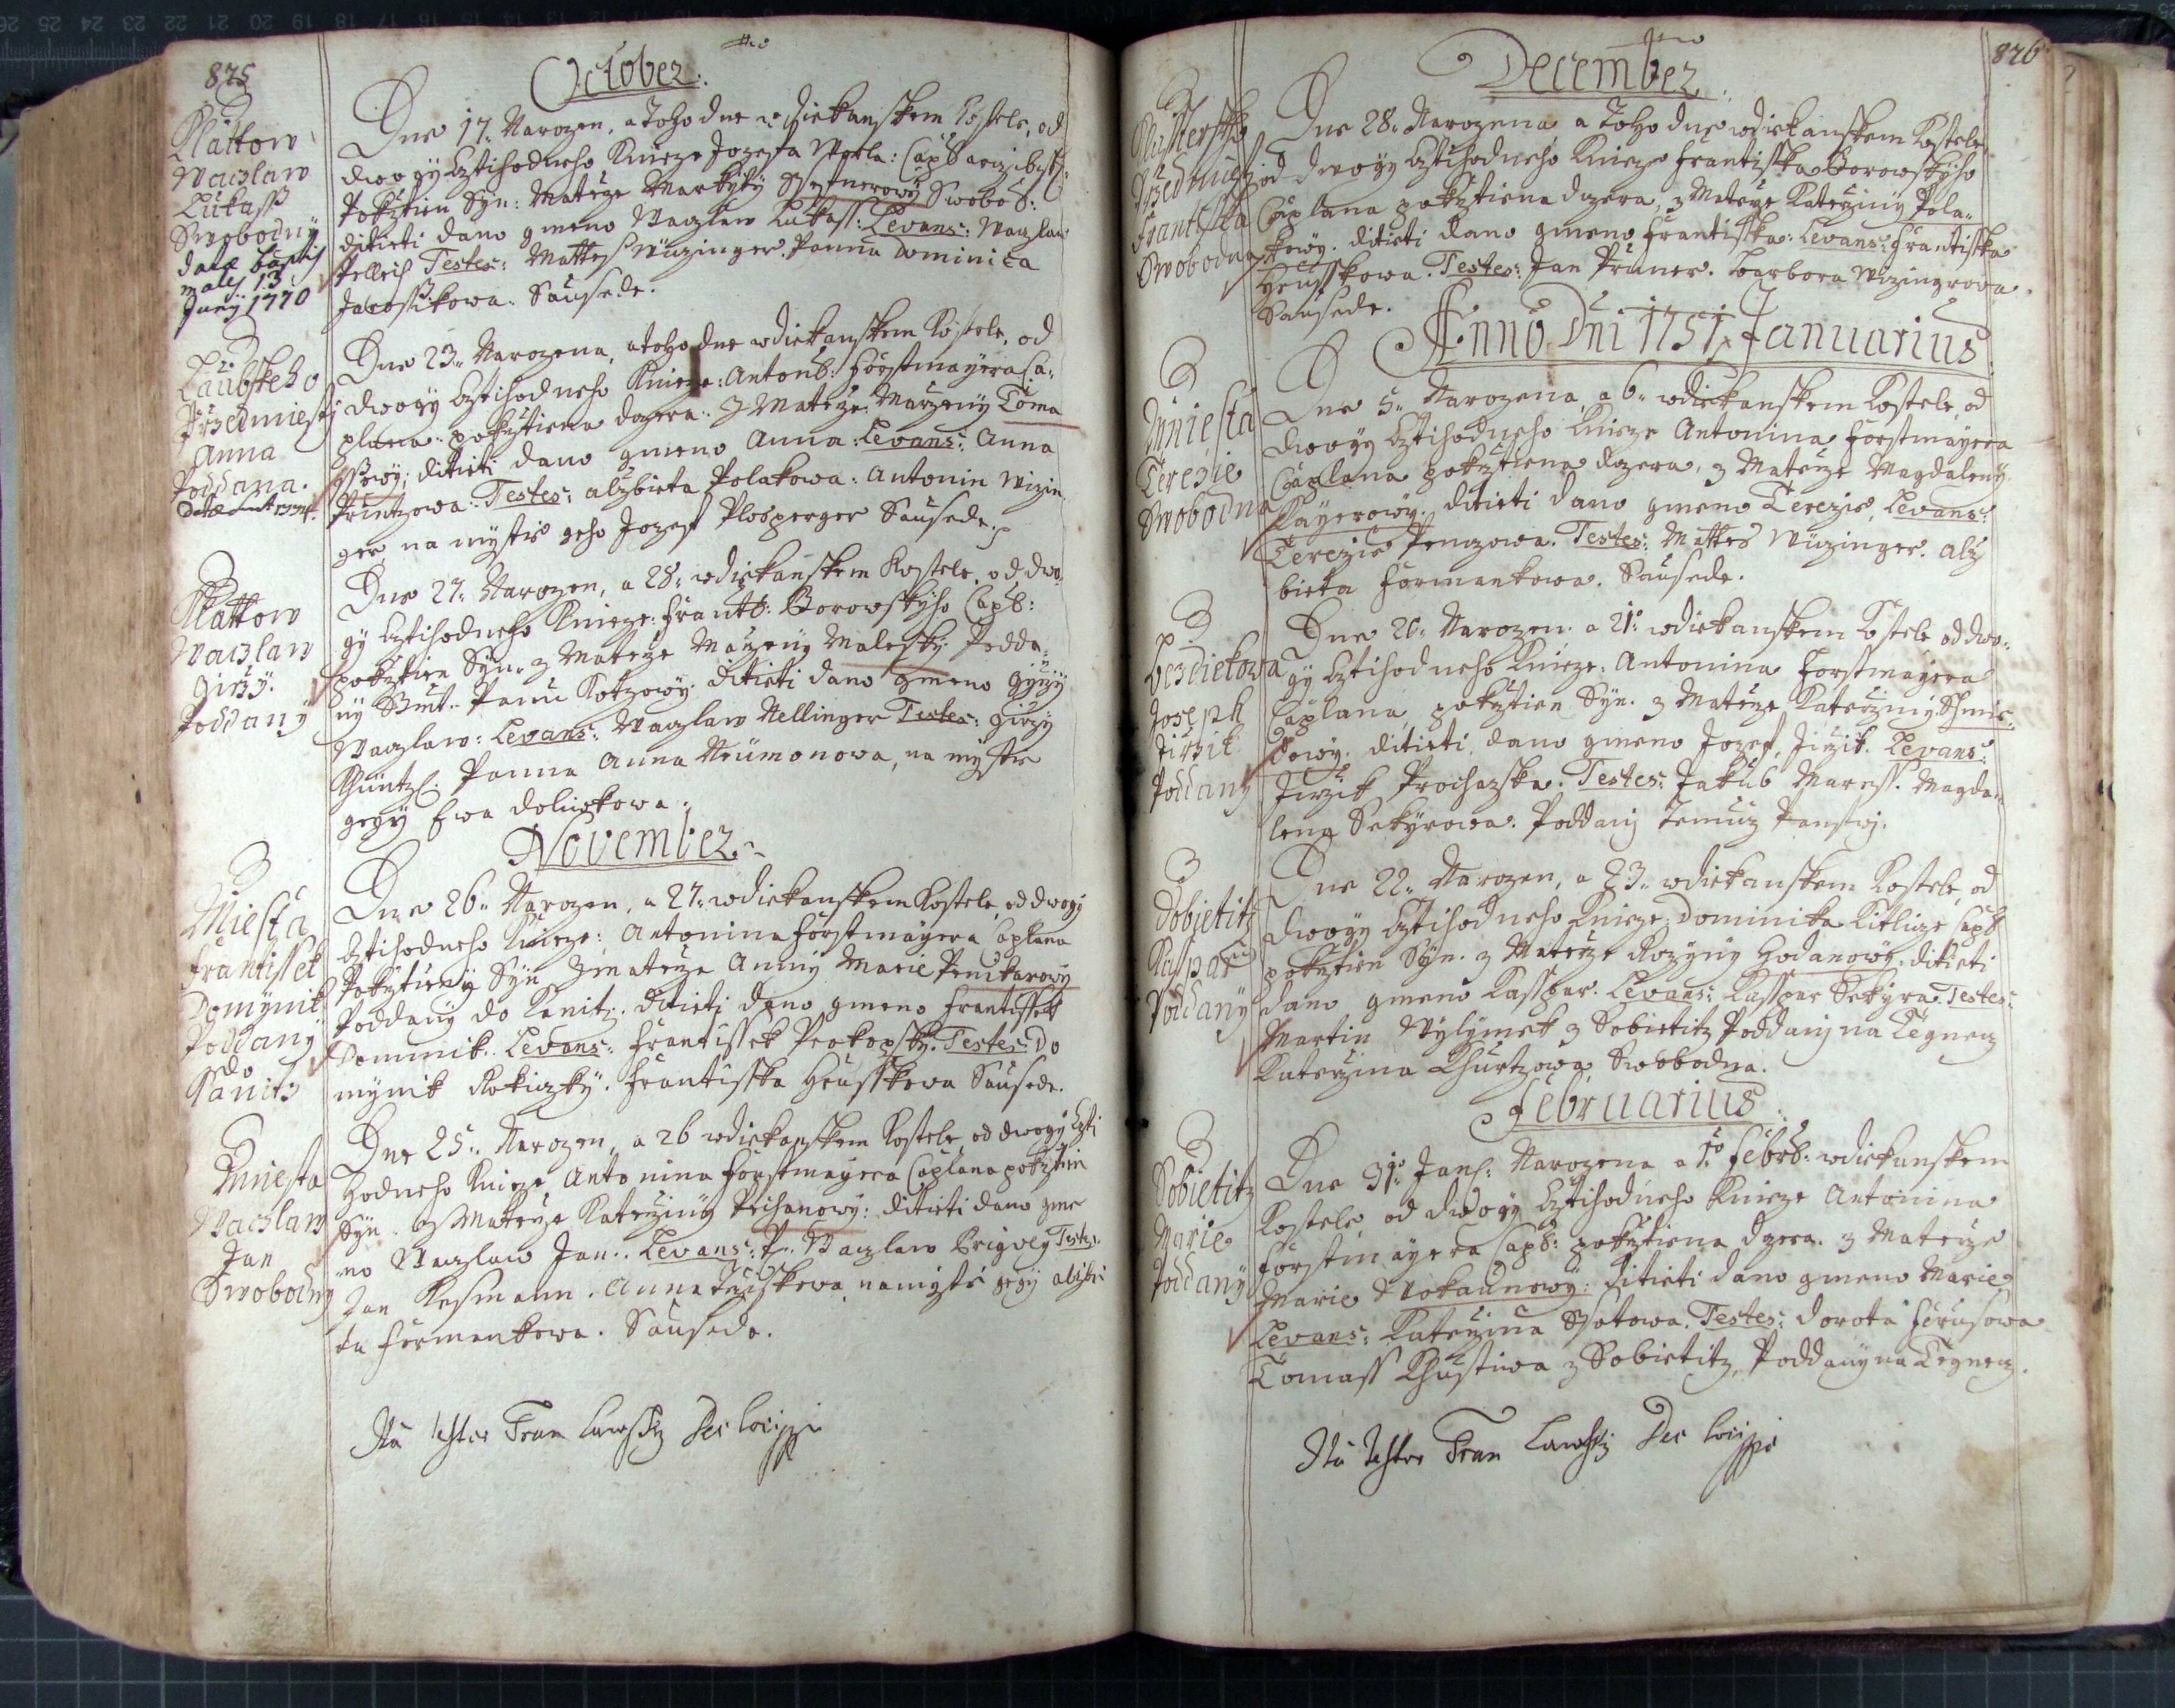 825
October
Klattow
Waczlaw
Lukass
Swobodny
datae baptis
males 13
Juny 1770
Dne 17. Narozen, a Toho dne w diekanskem Kostele, od
dwogy Cztihodneho Knieze Jozefa Capl
Pokrztien Syn: Materze Markyty Swobod:
ditieti dano gmeno Waczlaw Lukass: Levans: Waczlaw
Testes: Mattes Wuzinger. Panna Dominica
Jarossikowa. Sausede.
Laubskeho
Przedmiesty
Anna
Poddana.
Dne 23. Narozena, a toho dne w diekanskem Kostele, od
dwogy Cztihodneho Knieze: Antonb: Forstmayera Ca:
plana: pokrztiena dczera: z Materze Marzeny Toma
ssowy: ditieti dano gmeno Anna: Levans: Anna
Testes: Alzbieta Polakowa: Antonin Wizin
ger, na mystie geho Jozef Plosperger Sausede.
Klattow
Waczlaw
Girzy.
Poddany
Dne 27. Narozen, a 28. w diekanskem Kostele, od dwo
gy Cztihodneho Knieze: Frantb: Borowskyho Capl:
pokrztien Syn. z Materze Marzeny Malesky: Podda:
ny Panu Kotzowy. ditieti dano gmeno Gyrzy
Waczlaw: Levans: Waczlaw Nellinger Testes: Girzy
Khuntzl. Panna Anna Neumonowa, na mystie
gegy Ewa
November
Miesta
Frantissek
Domynik
Poddany
do
Kanitz
Dne 26. Narozen, a 27. w diekanskem Kostele, od dwogy
Cztihodneho Knieze: Antonina Forstmayera Caplana
Pokrztieny Syn z materze Anny Marie
Poddany do Kanitz: ditieti dano gmeno Frantissek
Dominik. Levans: Frantissek Prokopsky. Testes: Do
mynik Rokiczky. Frantisska Hrusskowa Sausede.
Zmiesta
Waczlaw
Jan
Swobodny
Dne 25. Narozen, a 26 w diekanskem Kostele, od dwogy Czti
hodneho Knieze Antonina Forstmayera Caplana pokrztien
Syn z Materze Katerziny ditieti dano gme
no Waczlaw Jan. Levans: P. Waczlaw Testes:
Jan Kesmann. Anna na mystie gegy Alzbie
ta Formankowa. Sausede.
Ita testor Fran
826
December
Przedmiesti
Frantisska
Swobodna
Dne 28. Narozena a Toho dne w diekanskem Kostele
od dwogy Cztihodneho Knieze Frantisska Borowskyho
Caplana pokrztiena dczera, z Materze Katerziny Pola:
kowy. ditieti dano gmeno Frantisska: Levans: Frantisska
Hrusskowa. Testes: Jan Pruner. Barbora Wizingrowa
Sausede.
Anno Dni 1751 Januarius
Zmiesta
Terezie
Swobodna
Dne 5. Narozena, a 6. w diekanskem Kostele, od
dwogy Cztihodneho Knieze Antonina Forstmayera
Caplana pokrztiena dczera, z Materze Magdaleny
ditieti dano gmeno Terezie, Levans:
Terezie Testes: Mattes Wuzinger. Alz
bieta Formankowa. Sausede.
Bezdiekowa
Joseph
Jirzik
Poddany
Dne 20. Narozen. a 21. w diekanskem Kostele od dwo:
gy Cztihodneho Knieze: Antonina Forstmayera
Caplana, pokrztien Syn. z Materze Katerziny Schmie
dowy. ditieti dano gmeno Jozef, Jirzik. Levans:
Jirzik Prochazka. Testes: Jakub Maress. Magda:
lena Sekyrowa. Poddany Temuz Panstwj.
Dobietitz
Kasspar
Poddany
Dne 22. Narozen, a 23. w diekanskem Kostele, od
dwogy Cztihodneho Knieze: Dominika Capl
pokrztien Syn. z Materze Rozyny Hodanowy. ditieti
dano gmeno Kasspar. Levans: Kasspar Sekyra. Testes:
Martin z Sobietitz Poddany na Tegnicz
Katerzina Khurtzowa, Swobodna.
Februarius
Sobietitz
Marie
Poddany
Dne 31. Jan: Narozena a 1. Febrb: w diekanskem
Kostele, od dwogy Cztihodneho Knieze Antonina
Forstmayera Capl: pokrztiena dczera. z Materze
Marie ditieti dano gmeno Marie
Levans: Katerzina Testes: Dorota
Tomass z Sobietitz, Poddany na Tegnicz.
Ita testor Fran